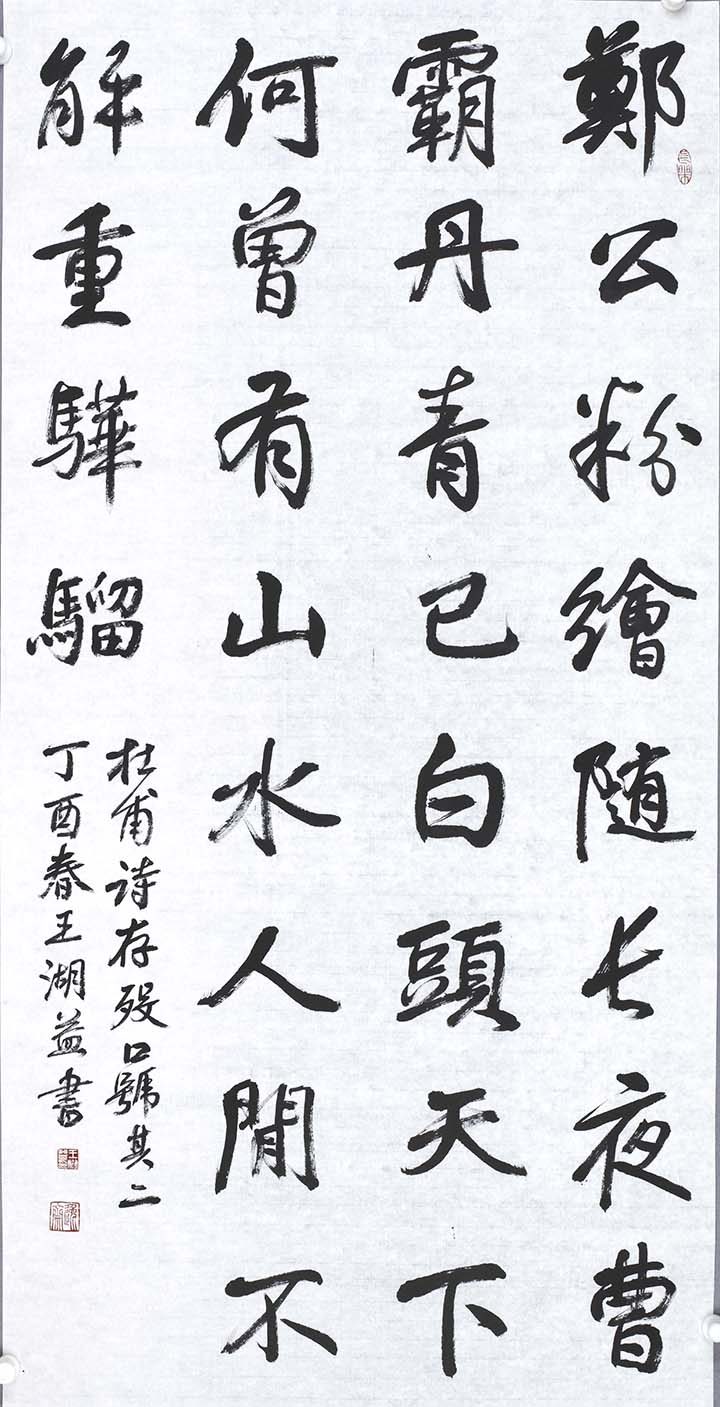 鄭公粉繪随长夜曹
霸丹青已白頭天下
何曾有山水人間不
解重驊騮
杜甫诗存殁口號其二
丁酉春王湖益書